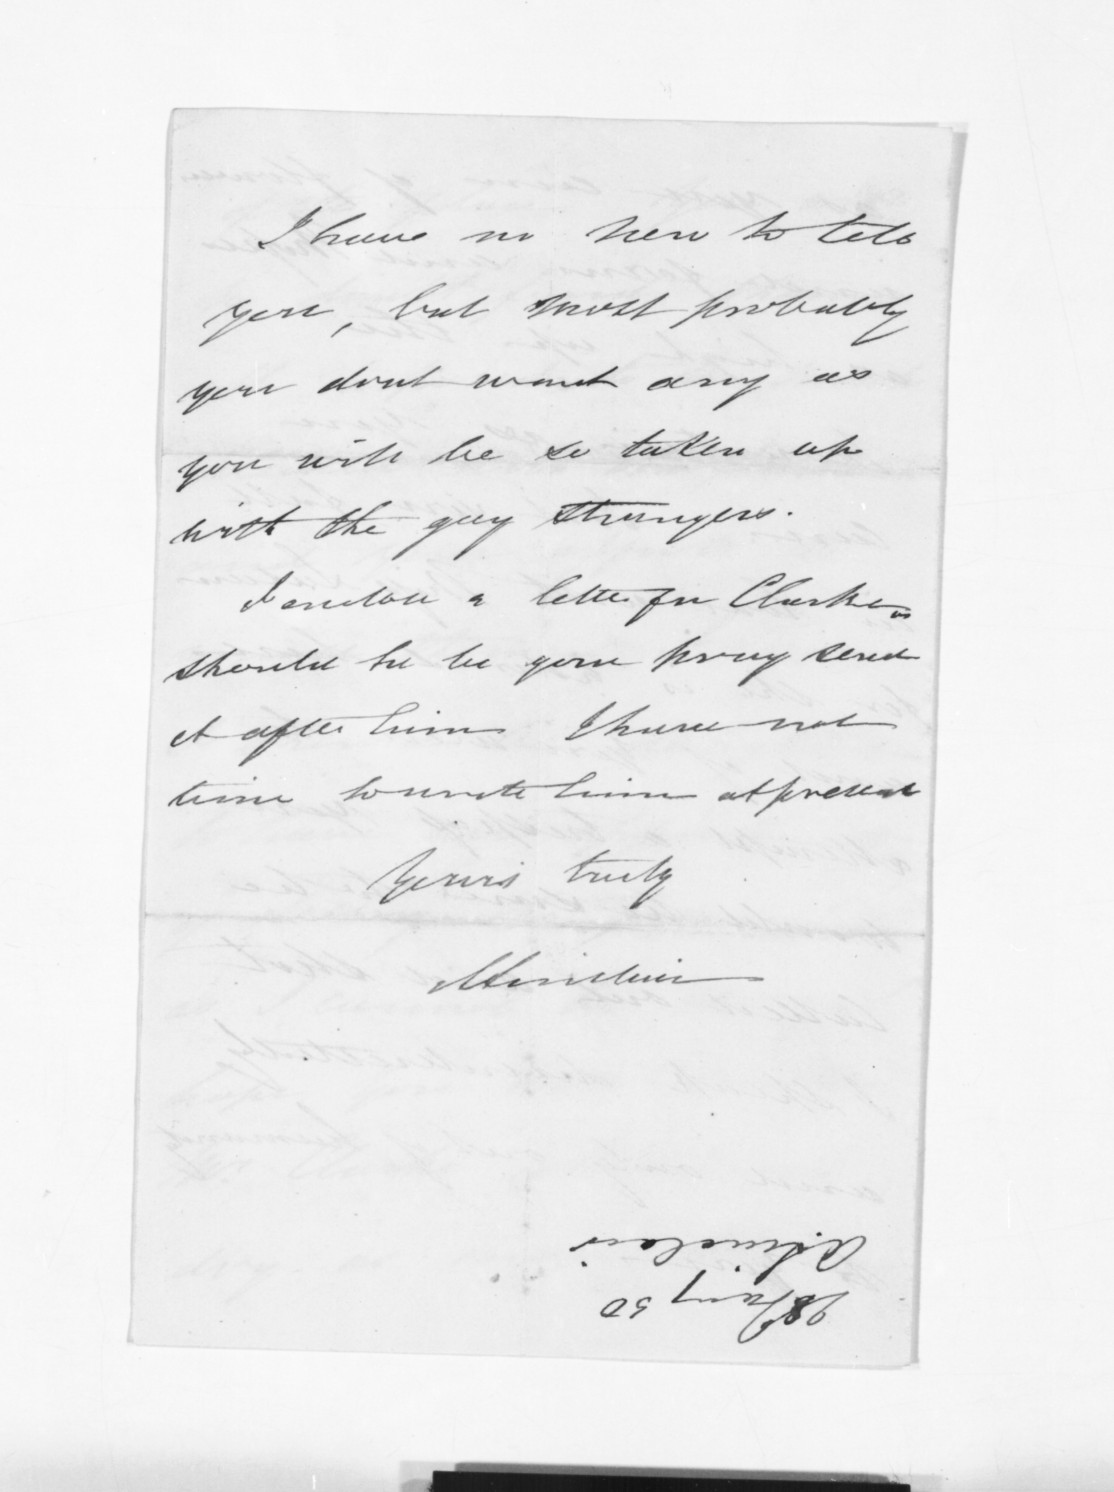 I have no new to tell
you, but most probably
you dont want any as
you will be so taken up
with the gay strangers.
I enclose a letter for Clarke
should he be gone pray send
it after him I have not
time to write him at present
Yours truly
A Sinclair
A. Sinclair
28 Jany 50